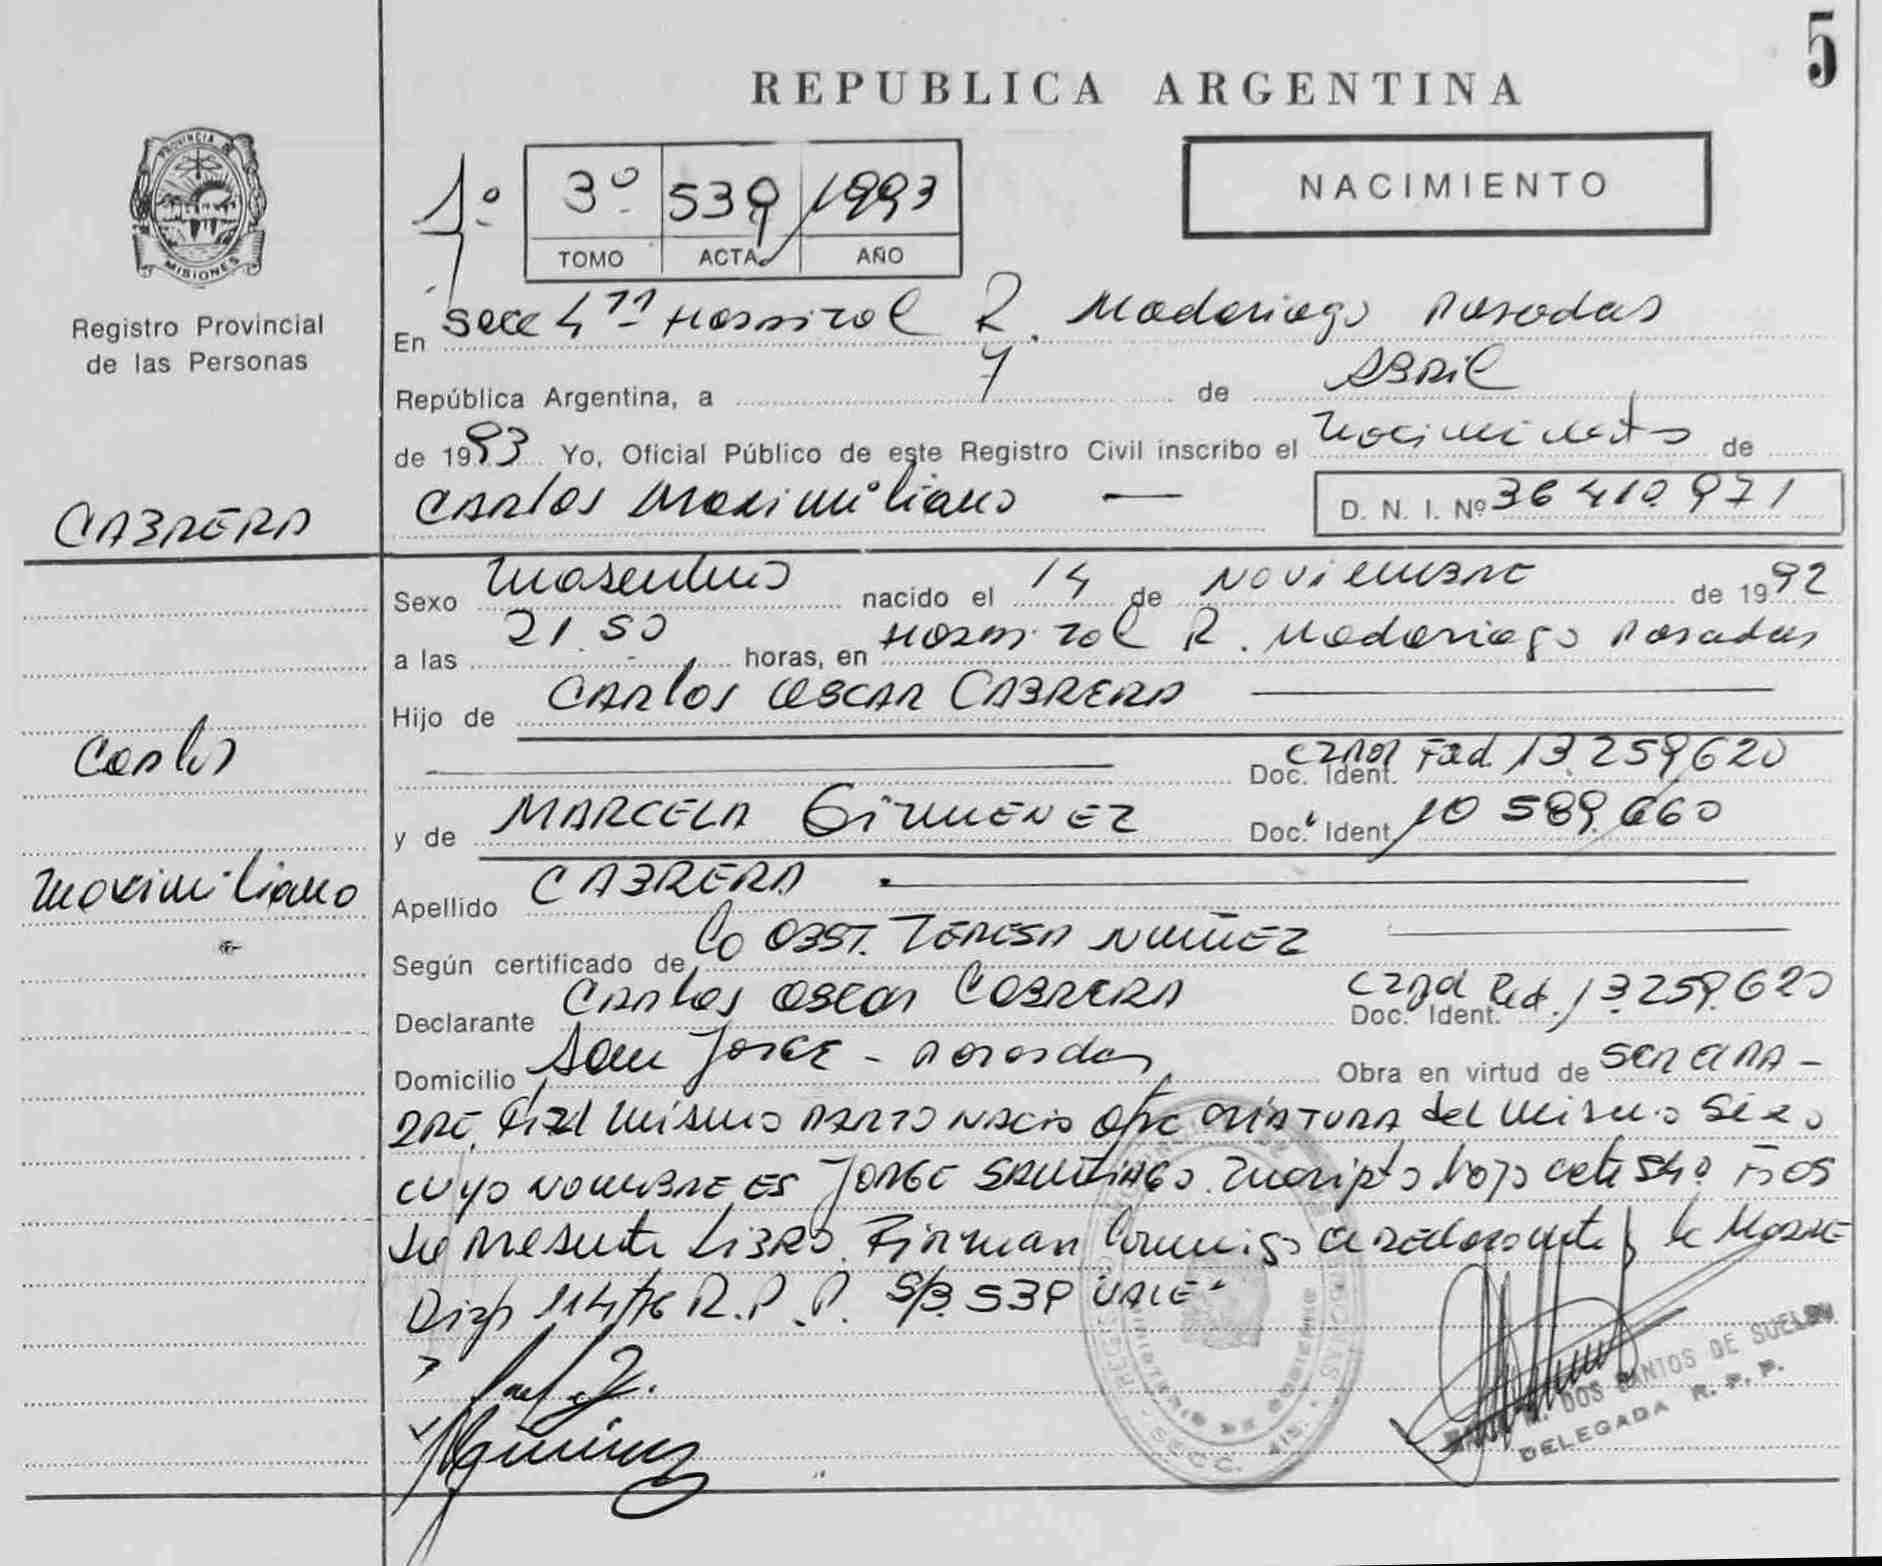 5
REPUBLICA ARGENTINA
PROVINCIA DE
MISIONES
Registro Provincial
de las Personas
NACIMIENTO
1º 3º 539 1993
TOMO ACTA AÑO
En Secc 4ta Hospital R. Madariaga Posadas
República Argentina, a 7 de Abril
de 1993 Yo, Oficial Público de este Registro Civil inscribo el Nacimiento de
CABRERA
Carlos Maximiliano — D. N. I. Nº 36 410 971
Sexo Masculino nacido el 14 de Noviembre de 1992
a las 21.50 horas, en Hospital R. Madariaga Posadas
Hijo de Carlos Oscar CABRERA
Carlos
Doc. Ident. 13.259.620
y de MARCELA GIMENEZ Doc. Ident 10 589.660
Maximiliano
Apellido CABRERA
Según certificado de la Obst. Teresa Nuñez
Declarante Carlos Oscar CABRERA Doc. Ident. 13.259.620
Domicilio San Jorge - Posadas Obra en virtud de ser el PA-
DRE. mismo parto nacio otra criatura del mismo sexo
cuyo nombre es Jorge Santiago. Inscripto bajo acta 540
del presente Libro. Firman conmigo el declarante y la Madre
Disp 114/76 R.P.P. S/B. 539 VALE-
DOS SANTOS DE SUELDO
DELEGADA R. P. P.